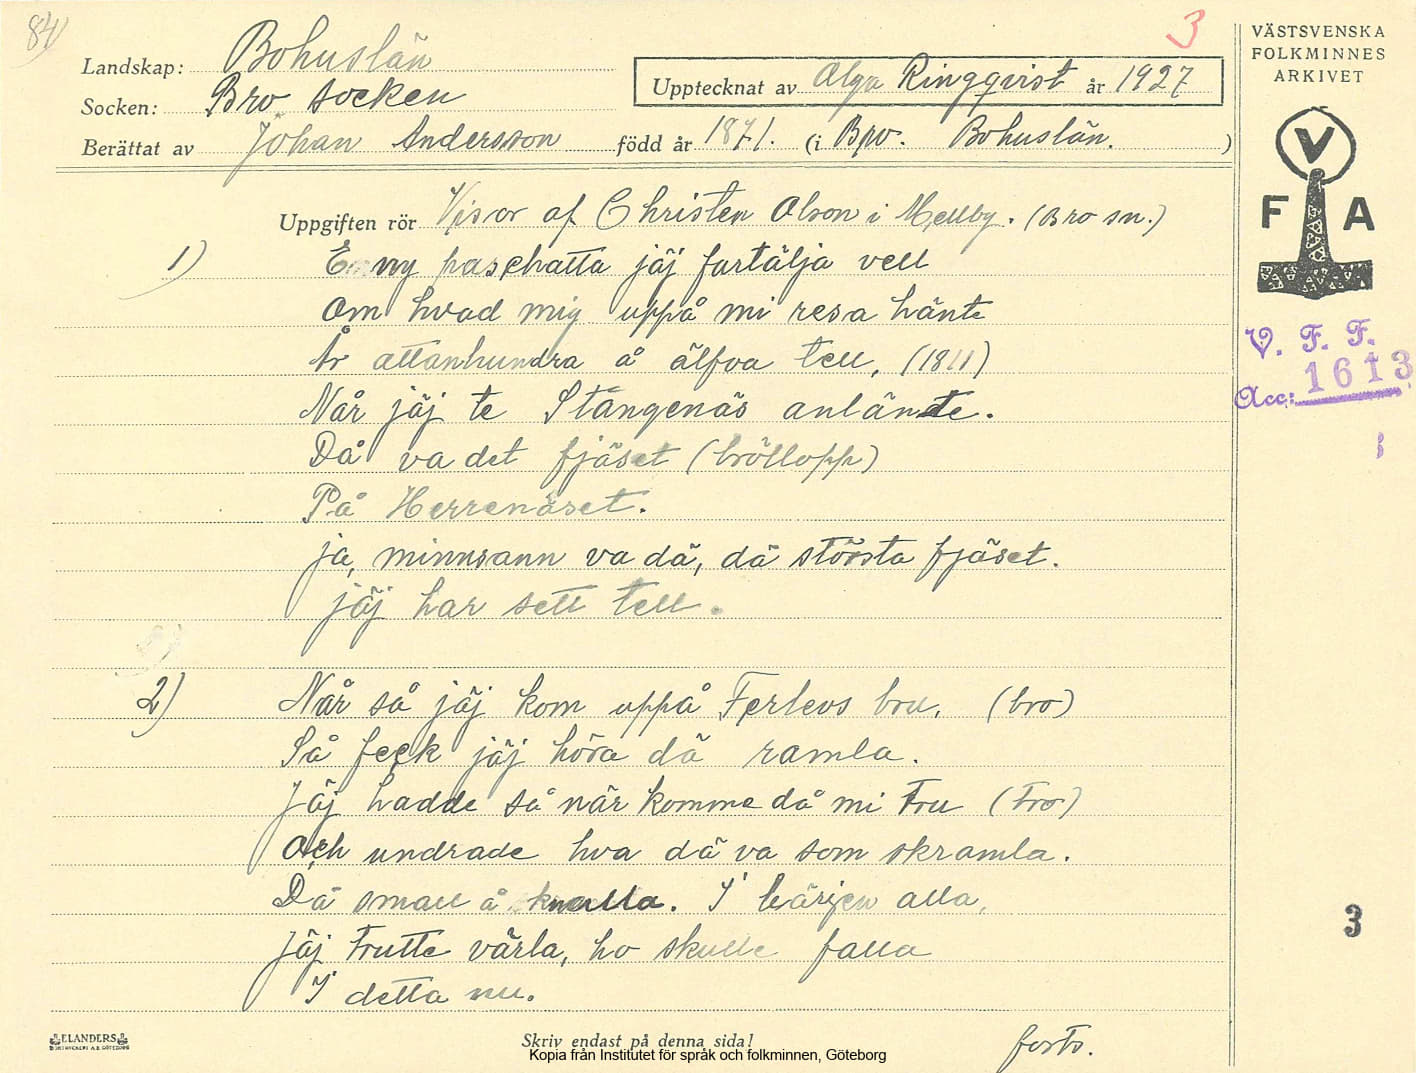 84)
3
VÄSTSVENSKA
FOLKMINNES
ARKIVET
Landskap: Bohuslän
Socken: Bro socken
Upptecknat av Olga Ringqvist år 1927
Berättat av Johan Andersson född år 1871. (i Bro. Bohuslän. )
V
F A
Uppgiften rör Visor af Christen Olson i Mellby. (Bro sn.)
1) En ny haschatta jäj fartälja vell
Om hvad mig uppå mi resa hänte
År attanhundra å älfva tell, (1811)
Når jäj te Stångenäs anlände.
Då va det fjäset (bröllopp)
På Herrenäset.
ja, minnsann va dä, dä största fjäset.
jäj har sett tell.
V. F. F.
Acc: 1613
2) Når så jäj kom uppå Ferlevs bru, (bro)
Så feck jäj höra dä ramla.
Jäj hadde så när komme då mi Tru (Tro)
Och undrade hva dä va som skramla.
Dä small å knalla. I bärjen alla,
Jäj Trutte värla, ho skulle falla
I detta nu.
3
ELANDERS
Skriv endast på denna sida!
forts.
Kopia från Institutet för språk och folkminnen, Göteborg